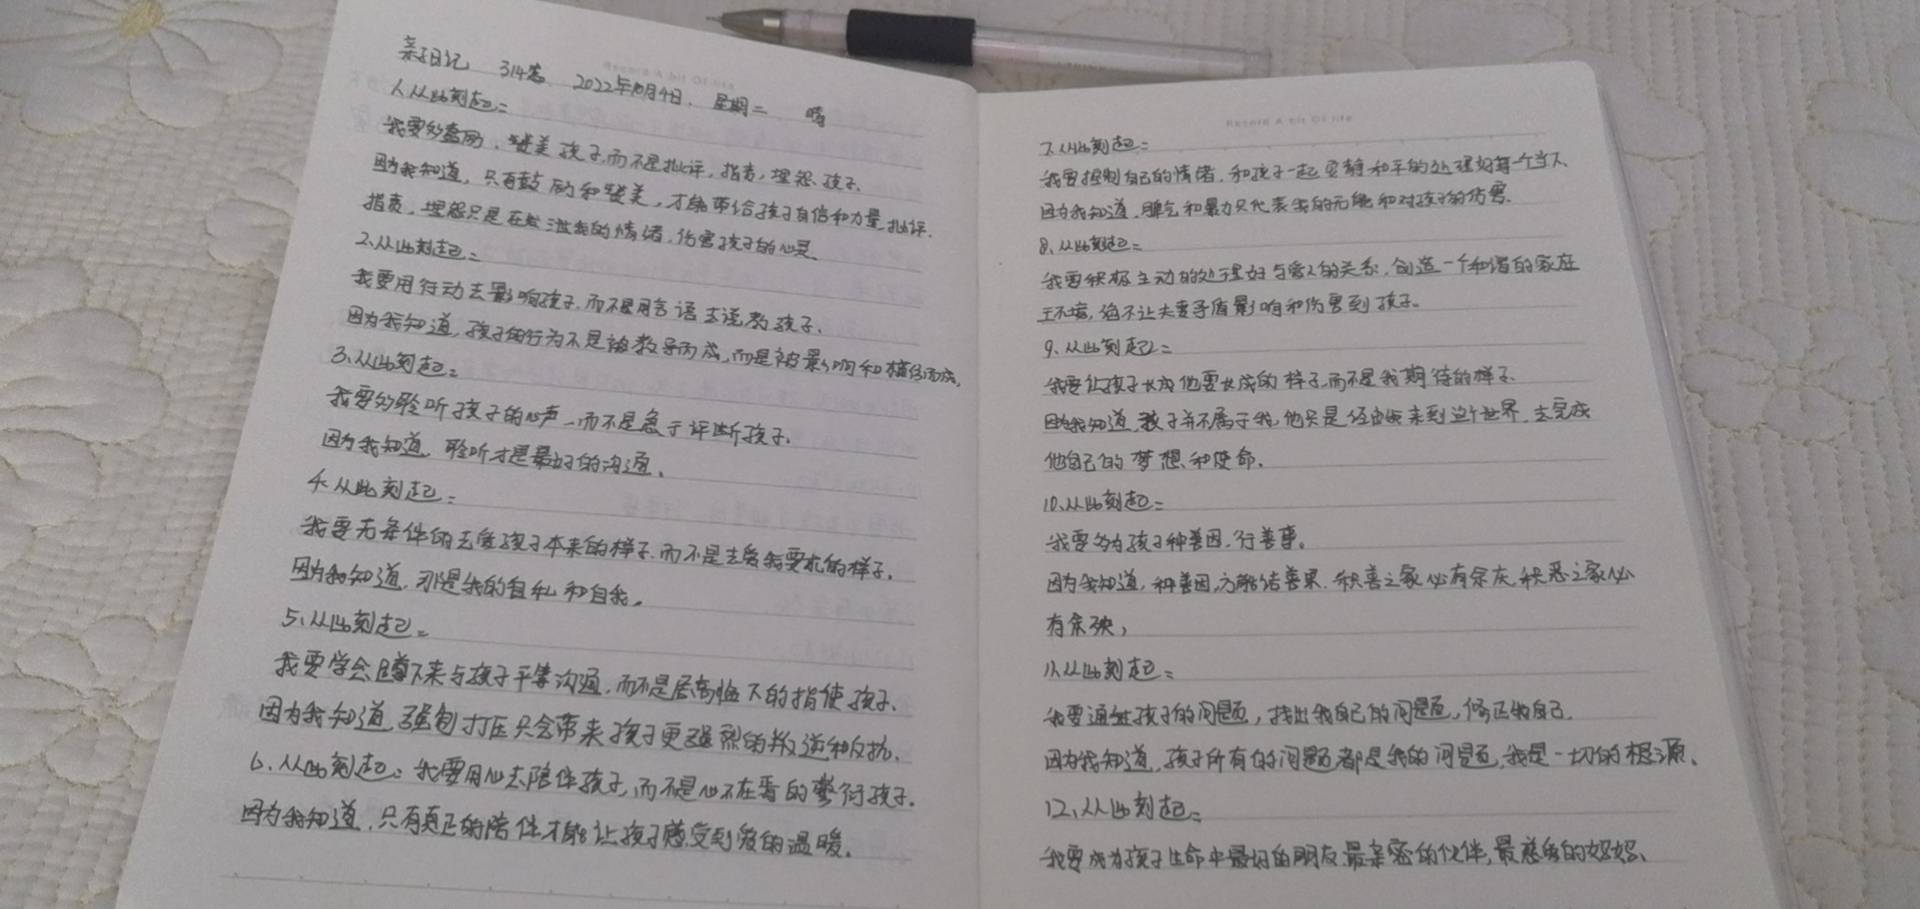 亲子日记 314篇 2022年10月4日. 星期二 晴
1、从此刻起:
我要多鼓励、赞美孩子,而不是批评,指责,埋怨孩子.
因为我知道,只有鼓励和赞美,才能带给孩子自信和力量,批评.
指责,埋怨只是在发泄我的情绪,伤害孩子的心灵.
2、从此刻起:
我要用行动去影响孩子,而不是用言语去说教孩子、
因为我知道,孩子的行为不是被教导而成,而是被影响和模仿而成,
3、从此刻起:
我要多聆听孩子的心声,而不是急于评断孩子.
因为我知道,聆听才是最好的沟通、
4、从此刻起:
我要无条件的去爱孩子本来的样子,而不是去爱我要求的样子.
因为我知道,那是我的自私和自我。
5、从此刻起:
我要学会蹲下来与孩子平等沟通,而不是居高临下的指使孩子、
因为我知道,强制打压只会带来孩子更强烈的叛逆和反抗、
6、从此刻起:我要用心去陪伴孩子,而不是心不在焉的敷衍孩子.
因为我知道,只有真正的陪伴才能让孩子感受到爱的温暖.
Record A bit Of life
7、从此刻起:
我要控制自己的情绪,和孩子一起安静和平的处理好每一个当下、
因为我知道,脾气和暴力只代表我的无能和对孩子的伤害.
8、从此刻起:
我要积极主动的处理好与爱人的关系,创造一个和谐的家庭
环境,绝不让夫妻矛盾影响和伤害到孩子。
9、从此刻起:
我要让孩子长成他要长成的样子,而不是我期待的样子
因为我知道,孩子并不属于我,他只是经由我来到这个世界,去完成
他自己的梦想和使命.
10、从此刻起:
我要多为孩子种善因,行善事。
因为我知道,种善因,方能结善果.积善之家必有余庆,积恶之家必
有余殃,
11、从此刻起:
我要通过孩子的问题,找出我自己的问题,修正我自己.
因为我知道,孩子所有的问题都是我的问题,我是一切的根源、
12、从此刻起:
我要成为孩子生命中最好的朋友,最亲密的伙伴,最慈爱的妈妈、